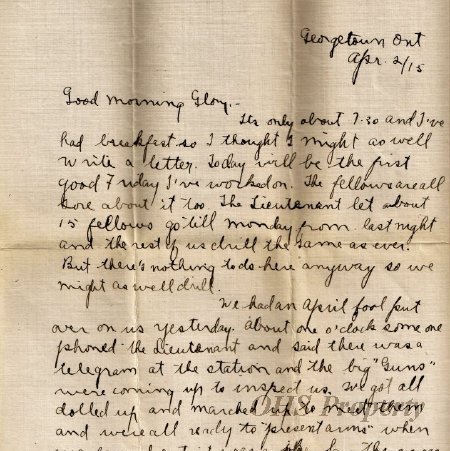 Georgetown Ont
Apr. 2/15
Good Morning Glory.-
Its only about 7-30 and I've
had breakfast so I thought I might as well
write a letter. Today will be the first
good Friday I've worked on. The fellows are all
sore about it too. The Lieutenant let about
15 fellows go till Monday from last night
and the rest of us drill the same as ever.
But there's nothing to do here anyway so we
might as well drill.
We had an April fool put
over on us yesterday. About one o'clock some one
phoned the Lieutenant and said there was a
telegram at the station and the big "Guns"
were coming up to inspect us. We got all
dolled up and marched up to meet them
and were all ready to "present arms" when
OHS Property